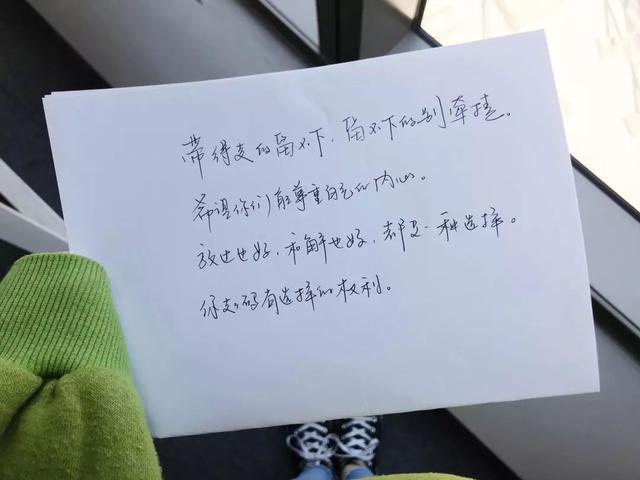 带得走的留不下，留不下的别牵挂。
希望你们能尊重自己的内心。
放过也好，和解也好，都是一种选择。
你起码有选择的权利。